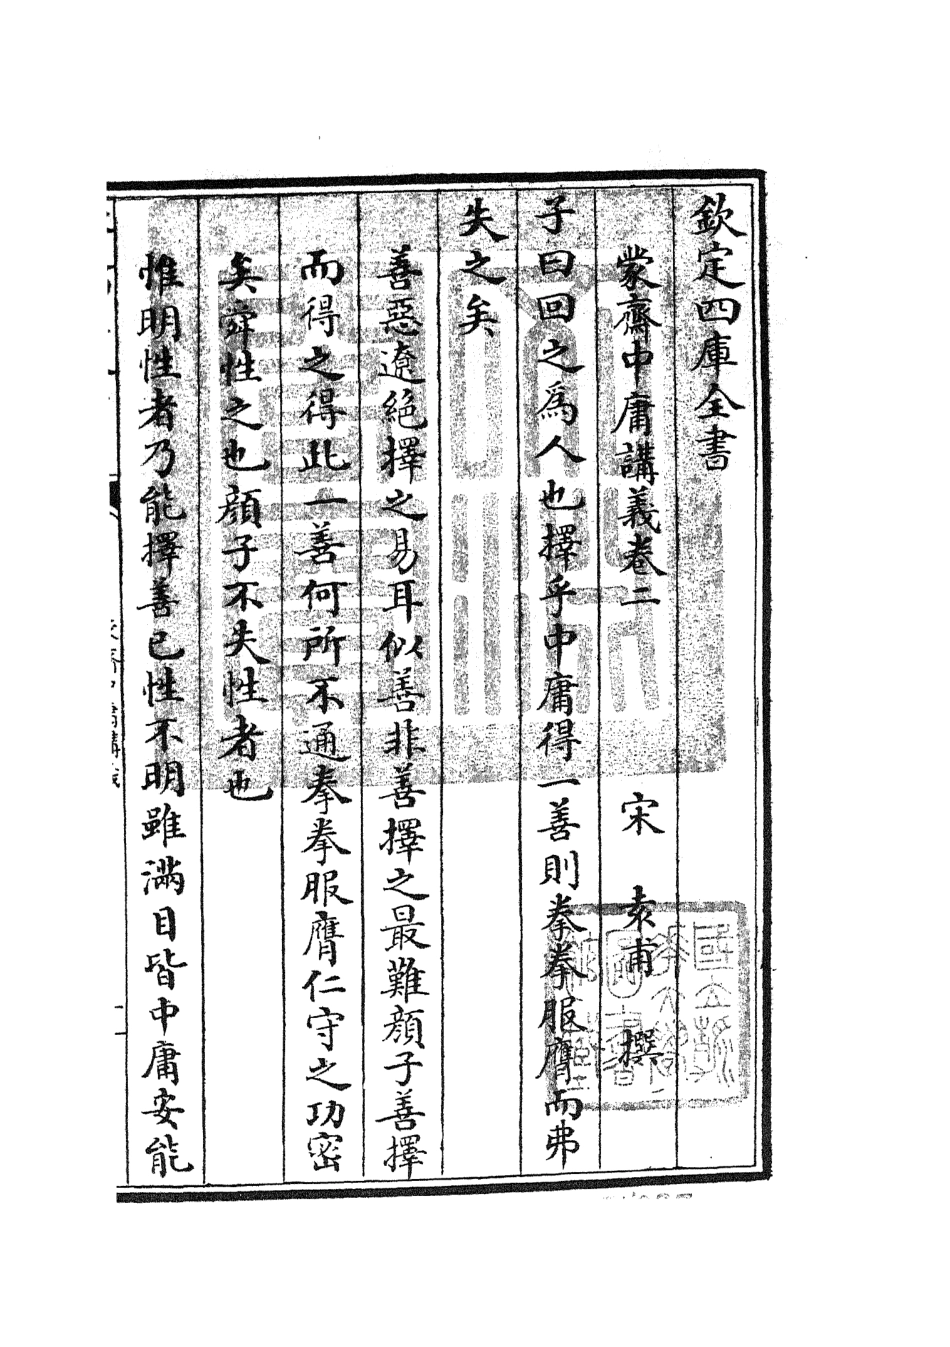 欽定四庫全書
蒙齋中庸講義卷二　宋　袁甫　撰
子曰回之爲人也擇乎中庸得一善則拳拳服膺而弗
失之矣
善惡遼絕擇之易耳似善非善擇之最難顔子善擇
而得之得此一善何所不通拳拳服膺仁守之功密
矣舜性之也顔子不失性者也
惟明性者乃能擇善已性不明雖滿目皆中庸安能